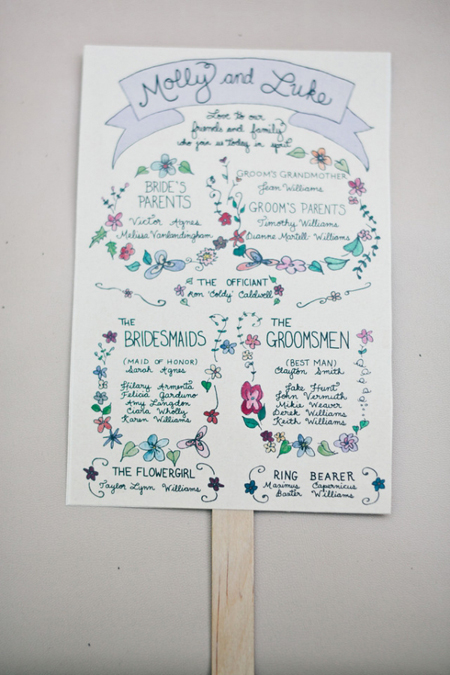 Molly and Luke
Love to our
friends and family
who join us today in spirit
BRIDE'S
PARENTS
Victor Agnes
Melissa Vanlendingham
GROOM'S GRANDMOTHER
Jean Williams
GROOM'S PARENTS
Timothy Williams
Duanne Martell-Williams
THE OFFICIANT
Ron "Coldy" Caldwell
THE
BRIDESMAIDS
(MAID OF HONOR)
Sarah Agnes
Hilary Armenta
Felicia Garduno
Amy Langdon
Ciara Wholly
Karen Williams
THE
GROOMSMEN
(BEST MAN)
Clayton Smith
Jake Hunt
John Vermuth
Mikie Weaver
Derek Williams
Keith Williams
THE FLOWERGIRL
Taylor Lynn Williams
RING BEARER
Maximus Capernicus
Baxter Williams